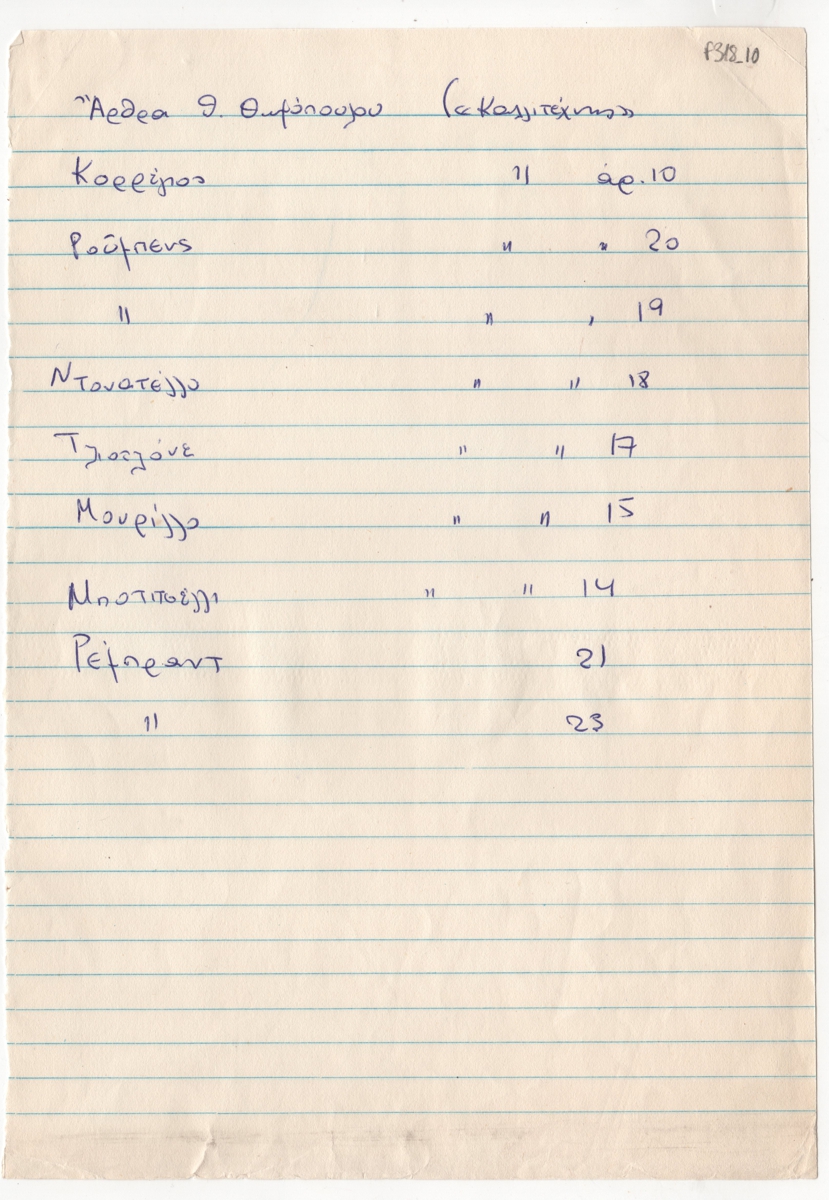 F318_10
Ἄρθρα Θ. Θωμόπουλου («Καλλιτέχνης»
Κορρέγιος " ἀρ. 10
Ροῦμπενς " " 20
" " " 19
Ντονατέλλο " " 18
" " 17
Μουρίλλο " " 15
Μποτιτσέλλι " " 14
Ρέμπραντ 21
" 23